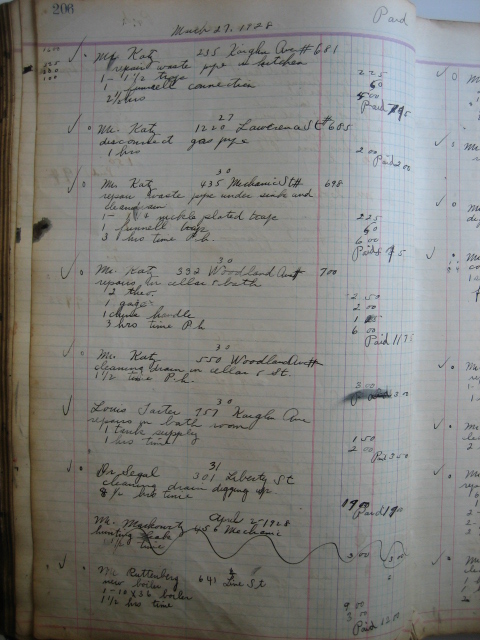 206
March 27, 1928 Paid
Mr. Katz 235 Kaighn Ave # 681
repairs waste pipe in kitchen
1 - 1 1/2 trap 2 25
1 funnell connection 50
2 1/2 hrs 5 00
Paid 7 75
27
Mr. Katz 1220 Lawrence St # 685
disconnect gas pipe
1 hrs 2 00
Paid 2 00
30
Mr. Katz 435 Mechanic St # 698
repair waste pipe under sink and
clean drain
1 - 1 1/2 nickle plated trap 2 25
1 funnell 50
3 hrs time P.h. 6 00
Paid 8 75
30
Mr. Katz 332 Woodland Ave # 700
repairs in cellar & bath
2 50
2 00
1 handle
3 hrs time P.h 6 00
Paid 11 75
30
Mr. Katz 550 Woodland Ave #
cleaning drain in cellar & St.
1 1/2 time P.h. 3 00
30
Louis Tarter 757 Kaighn Ave
repairs in bath room
1 tank supply 1 50
1 hrs time 2 00
Pd 3 50
31
Dr. Segal 301 Liberty St
cleaning drain digging up
8 1/2 hrs time 19 00
Paid 19 00
April 2 1928
Mr. Markowitz 456 Mechanic
hunting leak
time 3 00 3 00
Mr Ruttenberg 641 Line St
new boiler
1 - 18 X 36 boiler 9 00
1 1/2 hrs time 3 00
Paid 12 00